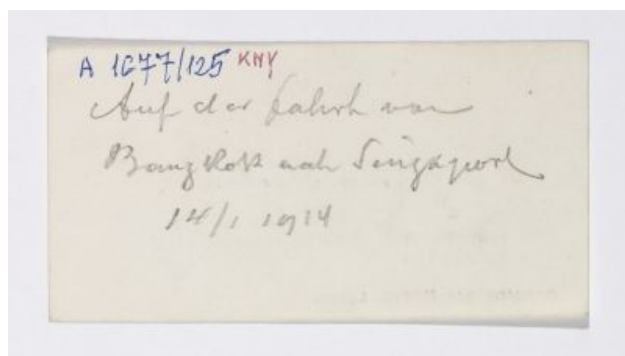 A 1677/125 KHY
Auf der Fahrt von
Bangkok nach Singapore
14/1 1914